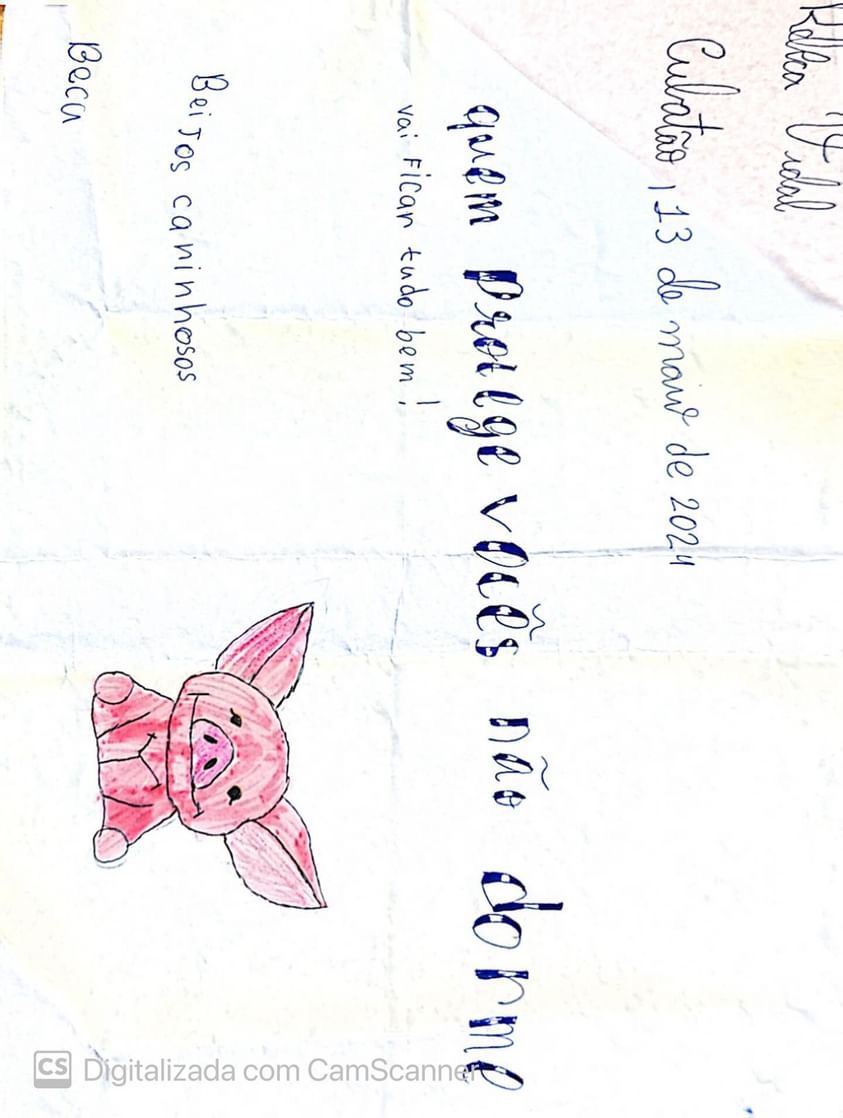 Rebeca Vidal
Cubatão, 13 de maio de 2024
quem protege vocês não dorme
vai ficar tudo bem!
Beijos carinhosos
Beca
CS Digitalizada com CamScanner